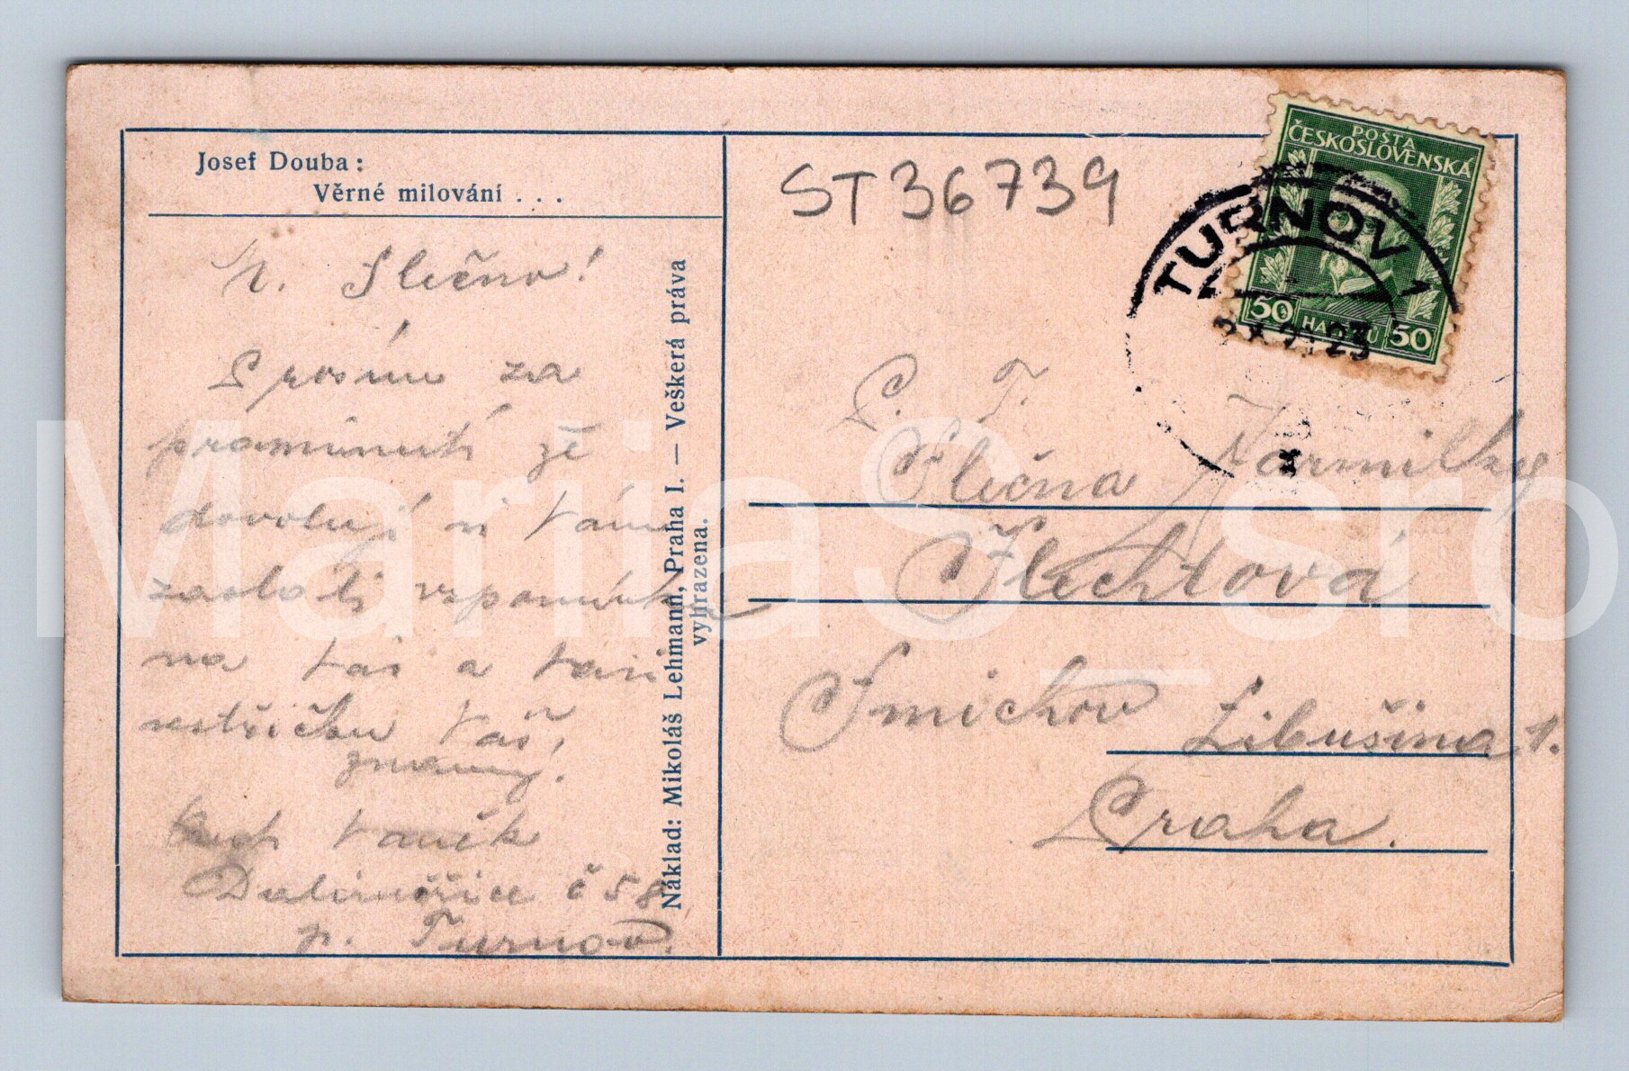 Josef Douba:
Věrné milování . . .
Slečno!
Prosím za
prominutí že
dovoluji si Vám
zaslati vzpomínku
na Vás a Vaši
sestřičku Váš
známý.
Vaněk
Daliměřice č 58
p. Turnov.
Náklad: Mikoláš Lehmann, Praha I. — Veškerá práva
vyhrazena.
ST36739
POŠTA
ČESKOSLOVENSKÁ
50 HALÉŘŮ 50
TURNOV 1
P. T.
Slečna Jarmilky
Flechtová
Smichov Libušina 1.
Praha.
MariiaS_sro